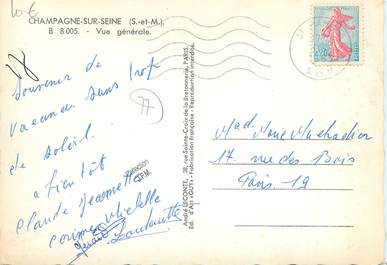 10 €
CHAMPAGNE-SUR-SEINE (S.-et-M.).
B 8 005. - Vue générale.
18
Souvenir de
vacances sans trop
de soleil.
a bientôt
Claude Jeannette
corinne Michelle
Gérard
77
Collection
André LECONTE, 38, rue Sainte-Croix de la Bretonnerie, PARIS.
Ed. d'Art «GUY» - Fabrication Française - Reproduction interdite.
0,20
Mad. Marie
17. rue des Bois
Paris. 19